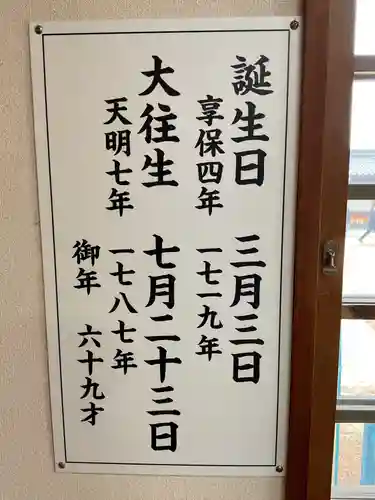 誕生日 三月三日
享保四年 一七一九年
大往生 七月二十三日
天明七年 一七八七年
御年 六十九才